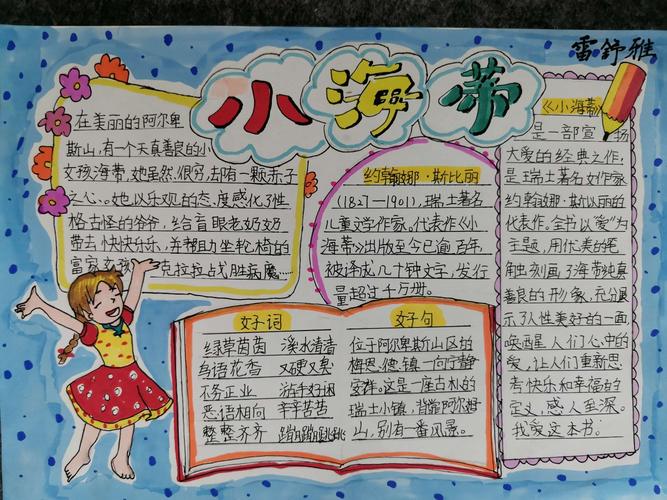 雷舒雅
小海蒂
在美丽的阿尔卑
斯山,有一个天真善良的小
女孩海蒂,她虽然很穷,却有一颗赤子
之心。她以乐观的态度感化了性
格古怪的爷爷,给盲眼老奶奶
带去快快乐乐,并帮助坐轮椅的
富家女孩克拉拉战胜病魔……
约翰娜·斯比丽
(1827-1901),瑞士著名
儿童文学作家。代表作《小
海蒂》出版至今已逾百年,
被译成几十种文字,发行
量超过千万册。
《小海蒂》
是一部宣扬
大爱的经典之作,
是瑞士著名女作家
约翰娜·斯以丽的
代表作。全书以“爱”为
主题,用优美的笔
触刻画了海蒂纯真
善良的形象,充分展
示了人性美好的一面,
唤醒人们心中的
爱,让人们重新思
考快乐和幸福的
定义,感人至深。
我爱这本书。
好词
绿草茵茵 溪水清清
鸟语花香 又硬又臭
不务正业 游手好闲
恶语相向 辛辛苦苦
整整齐齐 蹦蹦跳跳
好句
位于阿尔卑斯山区的
梅恩
镇一向宁静
。这是一座古朴的
瑞士小镇,背靠阿尔卑
山,别有一番风景。